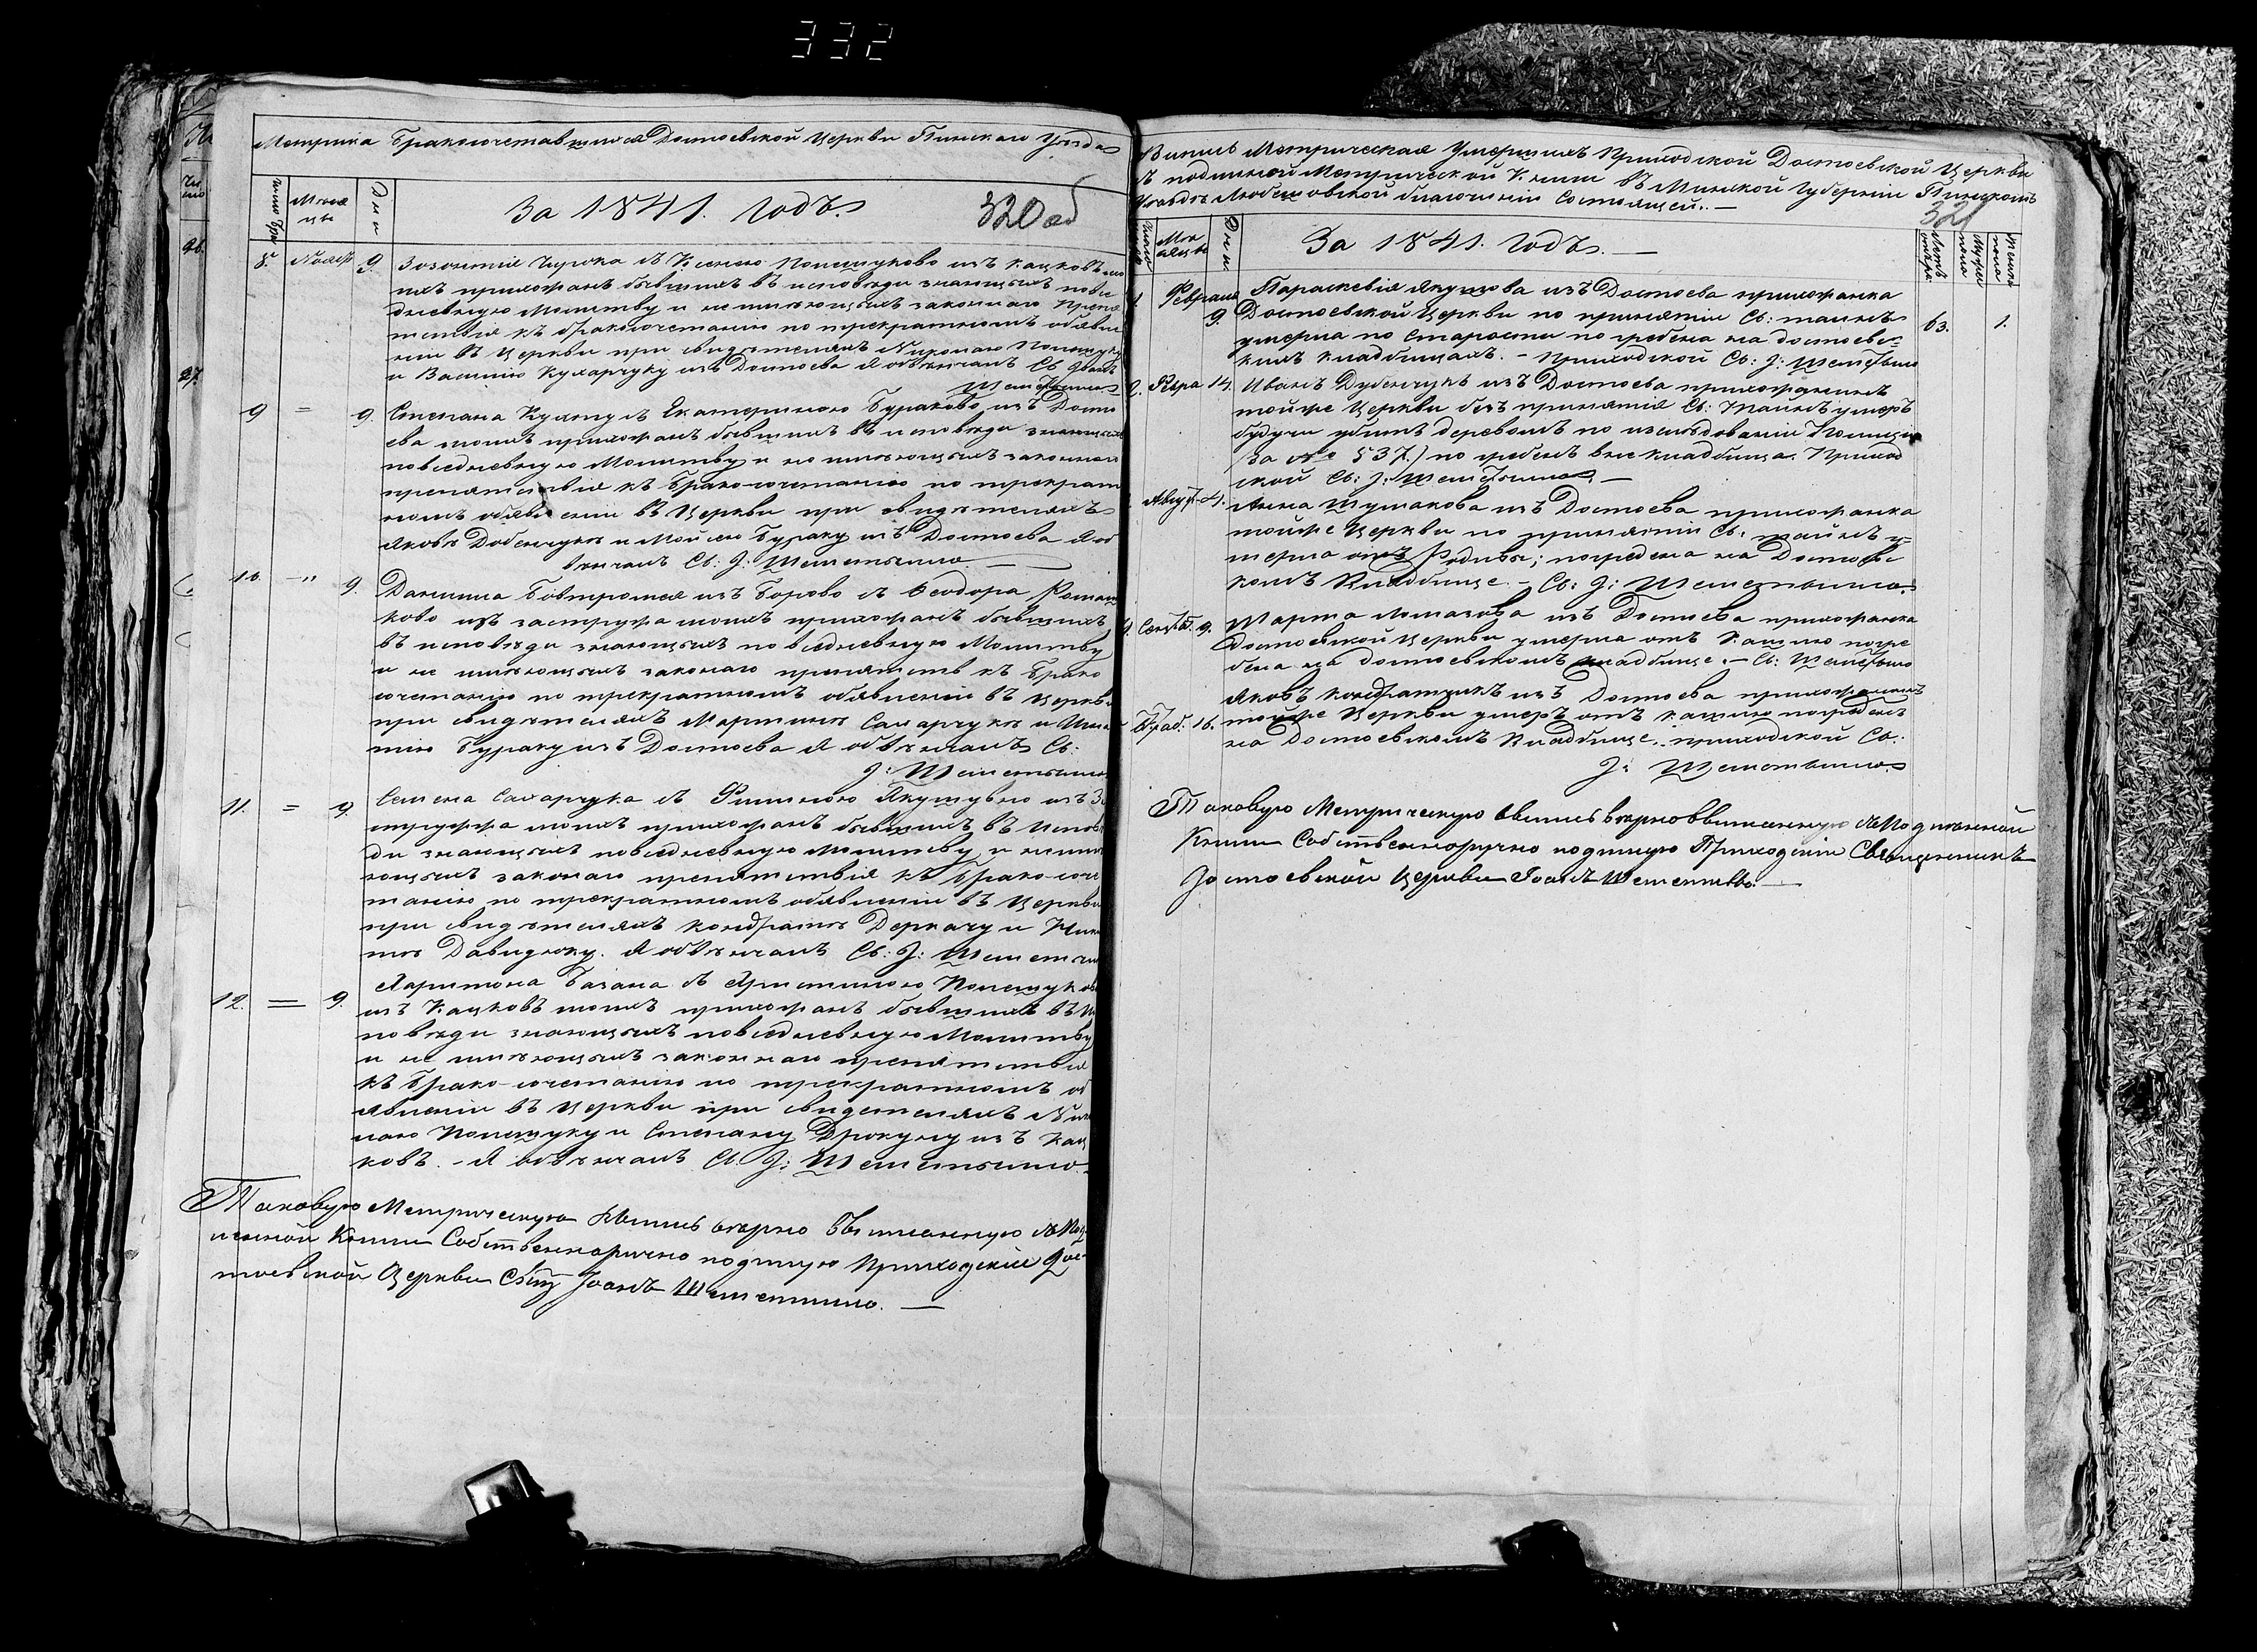 332
Метрика Бракосочетавшихся Достоевской Церкви Пинскаго Уезда
число бра
Меся
цы
Дни
За 1841. Годъ.
320 об
8. Ноября 9. Чирока съ Ксениею Полещуково изъ Кацковъ
ихъ прихожанъ бывшихъ въ исповѣди знающихъ повсе
дневную Молитву и не имѣющихъ законнаго препя
тствія къ бракосочетанію по трекратномъ объявле
ніи въ Церкви при свидѣтеляхъ Николаю Полещуку
и Василію Кухарчуку изъ Достоева я обвѣнчалъ Св. Іоанъ
Шеметылло
9 = 9. Степана Култу съ Екатериною Бураково изъ Досто
ева тоихъ прихожанъ бывшихъ въ исповѣди знающихъ
повседневную Молитву и не имѣющихъ законнаго
препятствія къ Брако-сочетанію по трекрат
номъ объявленіи въ Церкви при свидѣтеляхъ
Яковѣ Добенчукѣ и Мойсею Бураку изъ Достоева я об
вѣнчалъ Св: І: Шеметылло
10. -"- 9. Данила Бовтромея изъ Борово съ Ѳеодора
ково изъ застружа тоихъ прихожанъ бывшихъ
въ исповѣди знающихъ повседневную Молитву
и не имѣющихъ законаго препятств къ Брако
сочетанію по трекратномъ объявленіи въ Церкви
при свидѣтеляхъ Мартинѣ Сахарчукѣ и
тію Бураку изъ Достоева я обвѣнчалъ Св:
І: Шеметылло
11. = 9. Семена Сахарчука съ Якушувно изъ За
стружжа тоихъ прихожанъ бывшихъ въ Испове
ди знающихъ повседневную Молитву и неимѣ
ющихъ законаго препятствія къ Брако-соче
танію по трекратномъ объявленіи въ Церкви
при свидѣтеляхъ Кондратѣ Деркачу и Ники
тѣ Давидюку. я обвѣнчалъ Св: І: Шеметыл
12. = 9. Харитона Базана съ Христиною Полещуков
изъ Кацковъ тоихъ прихожанъ бывшихъ въ Ис
повѣди знающихъ повседневную Молитву
и не имѣющихъ законнаго препятствія
къ Брако-сочетанію по трекратномъ об
явленіи въ Церкви при свидетеляхъ Нико
лаю Полещуку и Степану Дрокуну изъ Кац
ковъ. - я обвѣнчалъ Св. І: Шеметылло.
Таковую Метрическую Выпись вѣрно выписанную съ Под
линной Книги Собственноручно подпишую Приходскій Дос
тоевской Церкви Свящ Іоанъ Шеметилло. —
Выпись Метрическая Умершихъ Приходской Достоевской Церкви
съ подлиной Метрической Книги въ Минской Губерніи Пинскомъ
Уездѣ Любешовской благочиніи Состоящей. —
321
число
Мес
яцы
Дни
За 1841. Годъ. —
Летъ
отъ роду
Мужес
полу
Женск
полу
1. Февраля 9. Параскевія Якушова изъ Достоева прихожанка
Достоевской Церкви по принятіи Св: таинъ
умерла по Старости погребена на достоевс=
кихъ кладбищахъ. - Приходской Св: І: Шеметыло 63. 1.
2. Февра 14. Иванъ Дубенчукъ изъ Достоева прихожанинъ
тойже Церкви безъ принятія Св: Таинъ умеръ
будучи убитъ деревомъ по изслѣдованіи Полиціи
(за № 537.) погребенъ вне кладбища. Приход
ской Св: І: Шеметылло —
Август 4. Анна Шумакова изъ Достоева прихожанка
тойже Церкви по принятіи Св. тайнъ у=
мерла отъ Родивы; погребена на Достоевс
комъ Кладбище. - Св: І: Шеметылло.
4. Сентя. 9. Марта Ломазова изъ Достоева прихожанка
Достоевской Церкви умерла отъ Кашлю погре
бена на достоевскомъ кладбище. - Св: Шеметыло
16. Яковъ Кондратчукъ изъ Достоева прихожанинъ
тойже Церкви умеръ отъ Кашлю погребенъ
на Достоевскомъ Кладбище. приходской Св:
І: Шеметылло.
Таковую Метрическую выпись вѣрно выписанную съ Подлинной
Книги Собственноручно подпишую Приходскій Священникъ
Достоевской Церкви Іоанъ Шеметилло. —